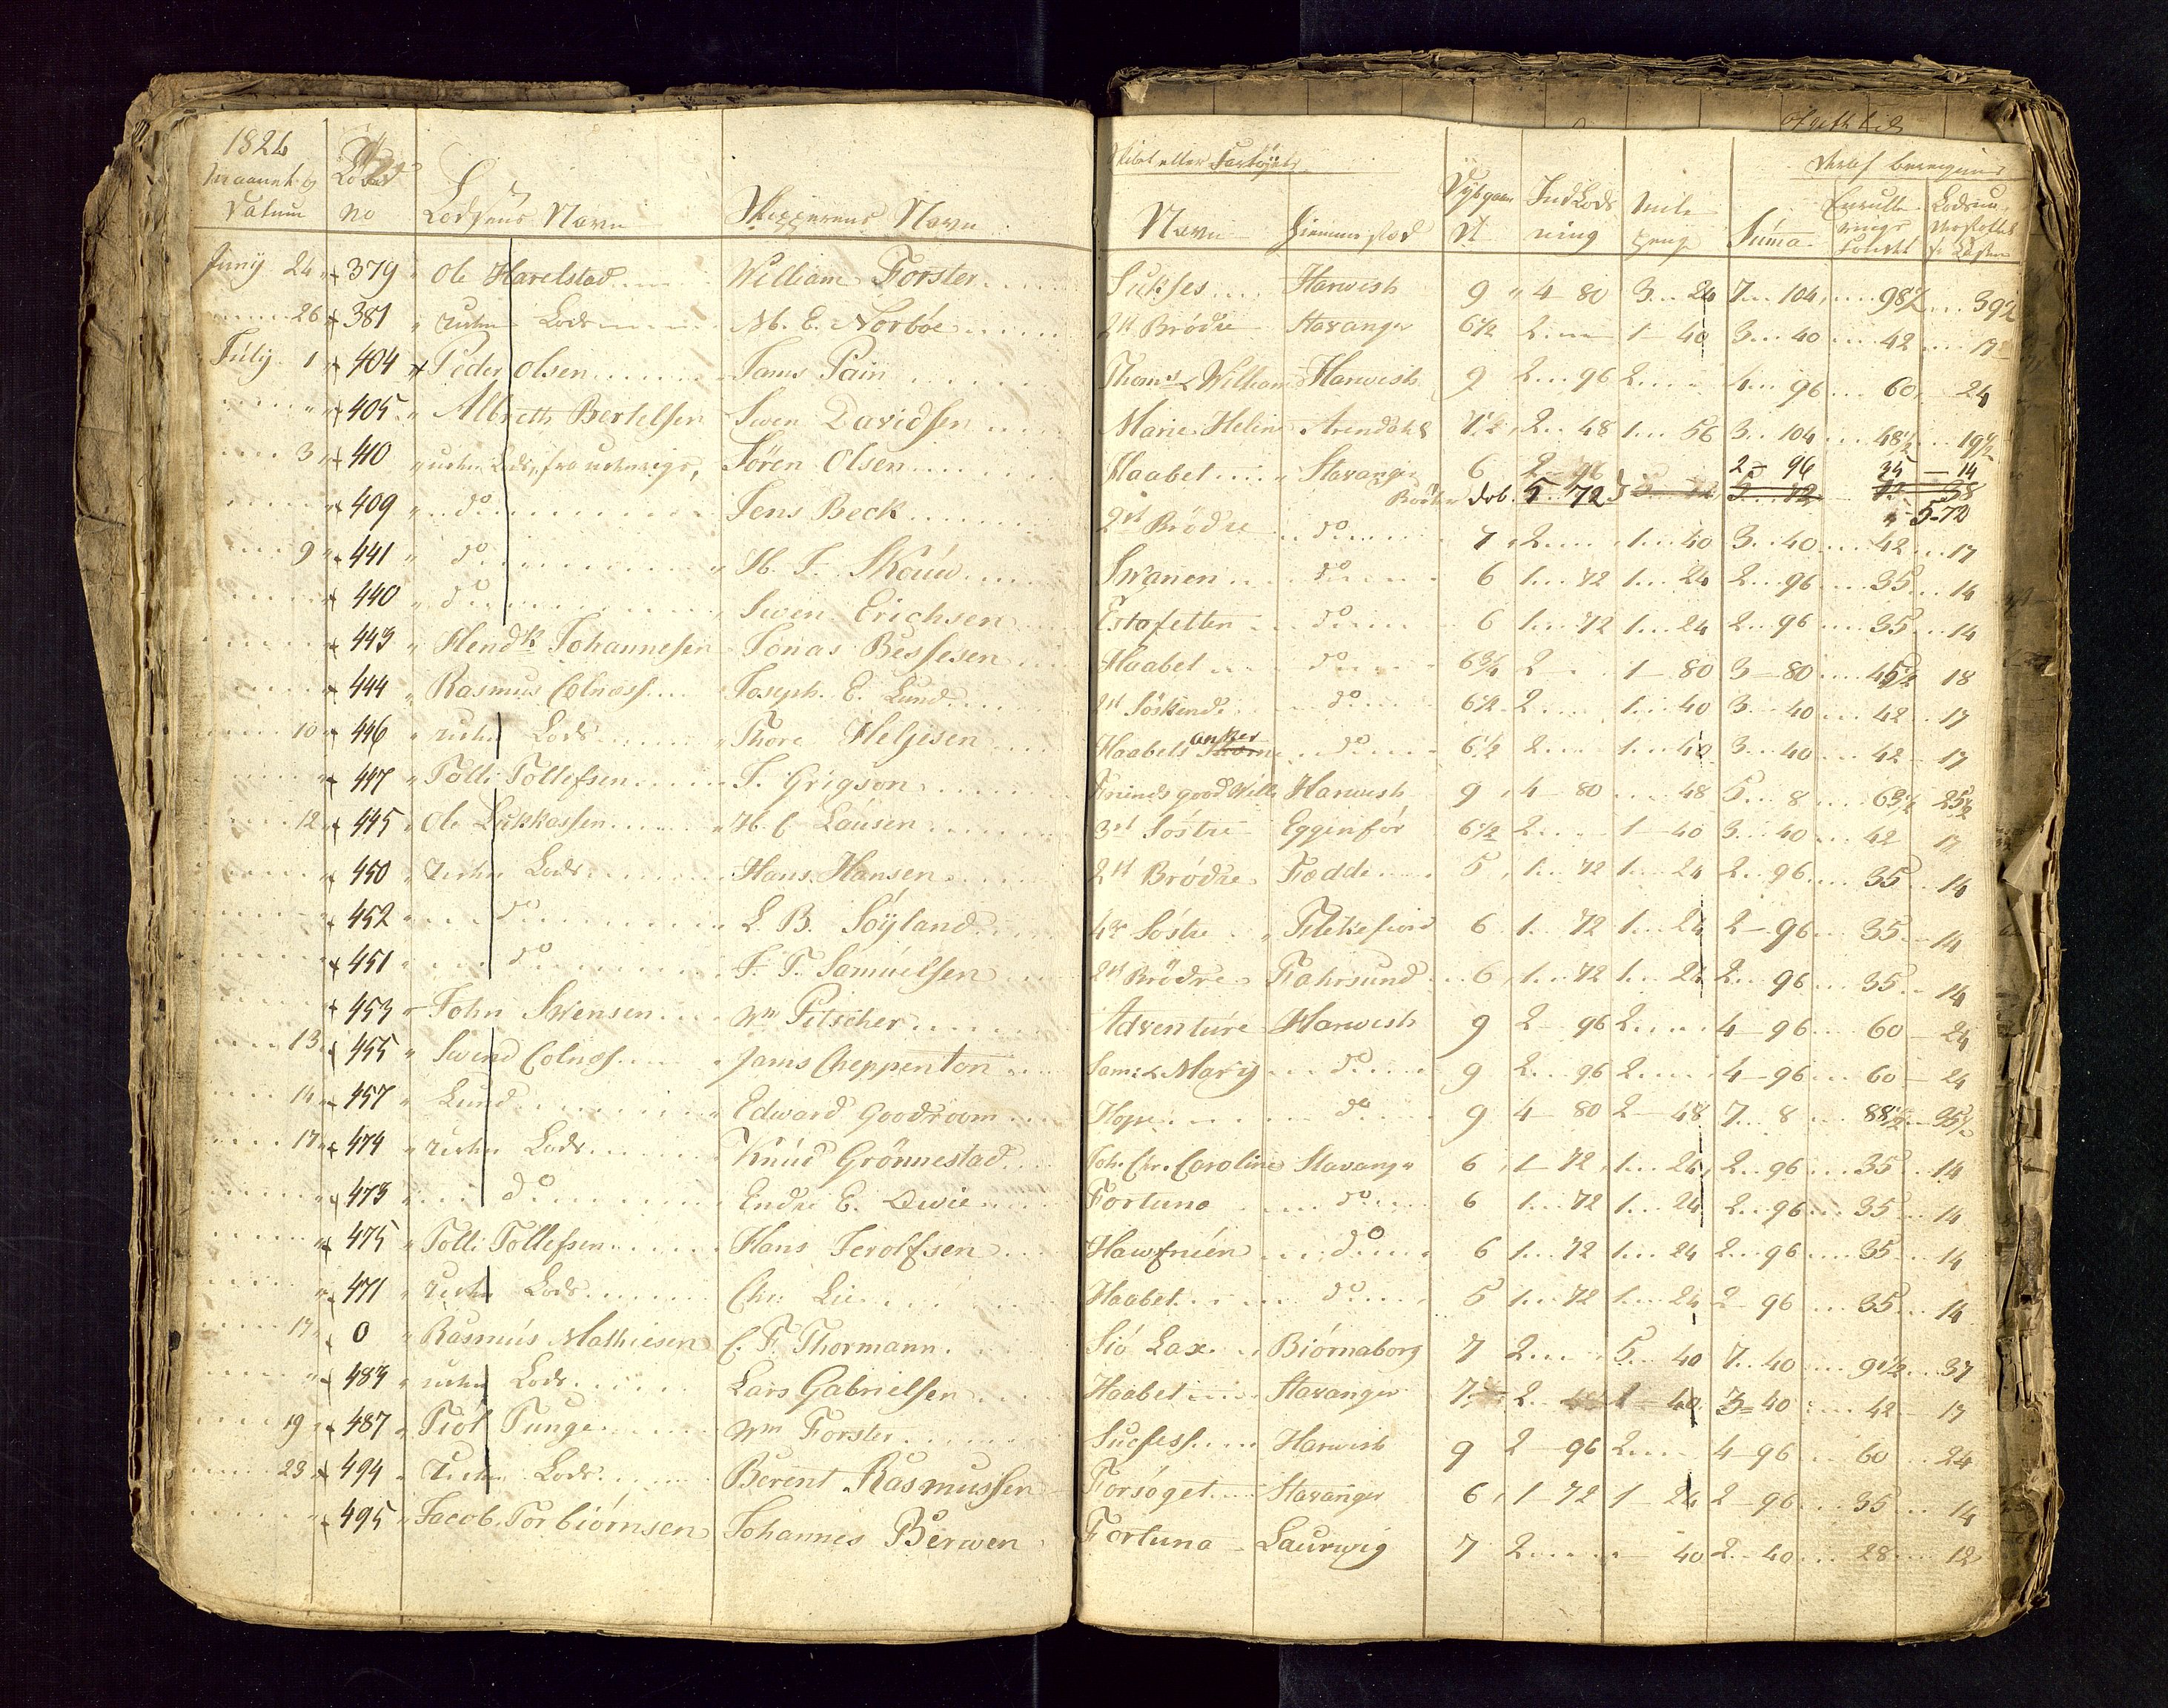 1826
Maanet og Datum No Lodsens Navn Skipperens Navn
Skibet eller Fartøjets
Navn Hiemmested Dybgaaen Indlodsning Summa
Juny 24 379 Ole Havelstad William Forster Sukses Harwish 9 4 80 3 24 7 104 98½ 39½
26 381 uden Lods M. E. Norbóe 2de Brødre Stavanger 6½ 2 1 40 3 40 42 17
July 1 404 Peder Olsen Jams Pain Thoms & William Harwish 9 2 96 2 4 96 60 24
405 Albreth Bertelsen Swen Davidsen Marie Helene Arendahl 7½ 2 48 1 56 3 104 48½ 19½
3 410 uden Lods, fra Søren Olsen Haabet Stavanger 6 2 96 2 96 35 14
dob. 5 72 5-72
409 do Jens Beck 2de Brødre do 7 2 1 40 3 40 42 17
9 441 do Swanen do 6 1 72 1 24 2 96 35 14
440 do Swen Erichsen Estafetten do 6 1 72 1 24 2 96 35 14
443 Hendk Johannesen Jonas Bessesen Haabet do 6¾ 2 1 80 3 80 45½ 18
444 Rasmus Colness Joseph. E. Lund 2de Söskende do 6½ 2 1 40 3 40 42 17
10 446 uden Lods Thore Heljesen Haabets anker do 6½ 2 1 40 3 40 42 17
447 Tølli Tøllefsen J. Grigson Friends good Will Harwish 9 4 80 48 5 8 63½ 25½
12 445 Ole Lukkassen H. C Lausen 3de Søstre Eggenfór 6½ 2 1 40 3 40 42 17
450 uden Lods Hans Hansen 2de Brødre Fædde 5 1 72 1 24 2 96 35 14
452 do L. B. Söyland 4re Søstre Flekkefiord 6 1 72 1 24 2 96 35 14
451 do F. T. Samuelsen 2de Brødre Fahrsund 6 1 72 1 24 2 96 35 14
453 John Swensen Wm Pitscher Adventure Harwish 9 2 96 2 4 96 60 24
13 455 Swend Colness Jams Cheppenton Sam: & Mary do 9 2 96 2 4 96 60 24
14 457 Lund Edward Goodroom Hope do 9 4 80 2 48 7 8 88½ 35½
17 474 uden Lods Knud Grønnestad Joh. Chr. Caroline Stavanger 6 1 72 1 24 2 96 35 14
473 do Endre E. Qwie Fortuna do 6 1 72 1 24 2 96 35 14
475 Tølli Tøllefsen Hans Jerolfsen Hawfruen do 6 1 72 1 24 2 96 35 14
471 uden Lods Chr. Lie Haabet do 5 1 72 1 24 2 96 35 14
17 0 Rasmus Mathiesen C. F. Thormann Siö Lax Biörnaborg 7 2 5 40 7 40 91½ 37
483 uden Lods Lars Gabrielsen Haabet Stavanger 7 2 1 40 3 40 42 17
19 487 Tiøl Tunge Wm Forster Sucsess Harwish 9 2 96 2 4 96 60 24
23 494 uden Lods Berent Rasmussen Forsøget Stavanger 6 1 72 1 24 2 96 35 14
495 Jacob Torbiørnsen Johannes Berwen Fortuna Laurwig 7 2 40 2 40 28 12